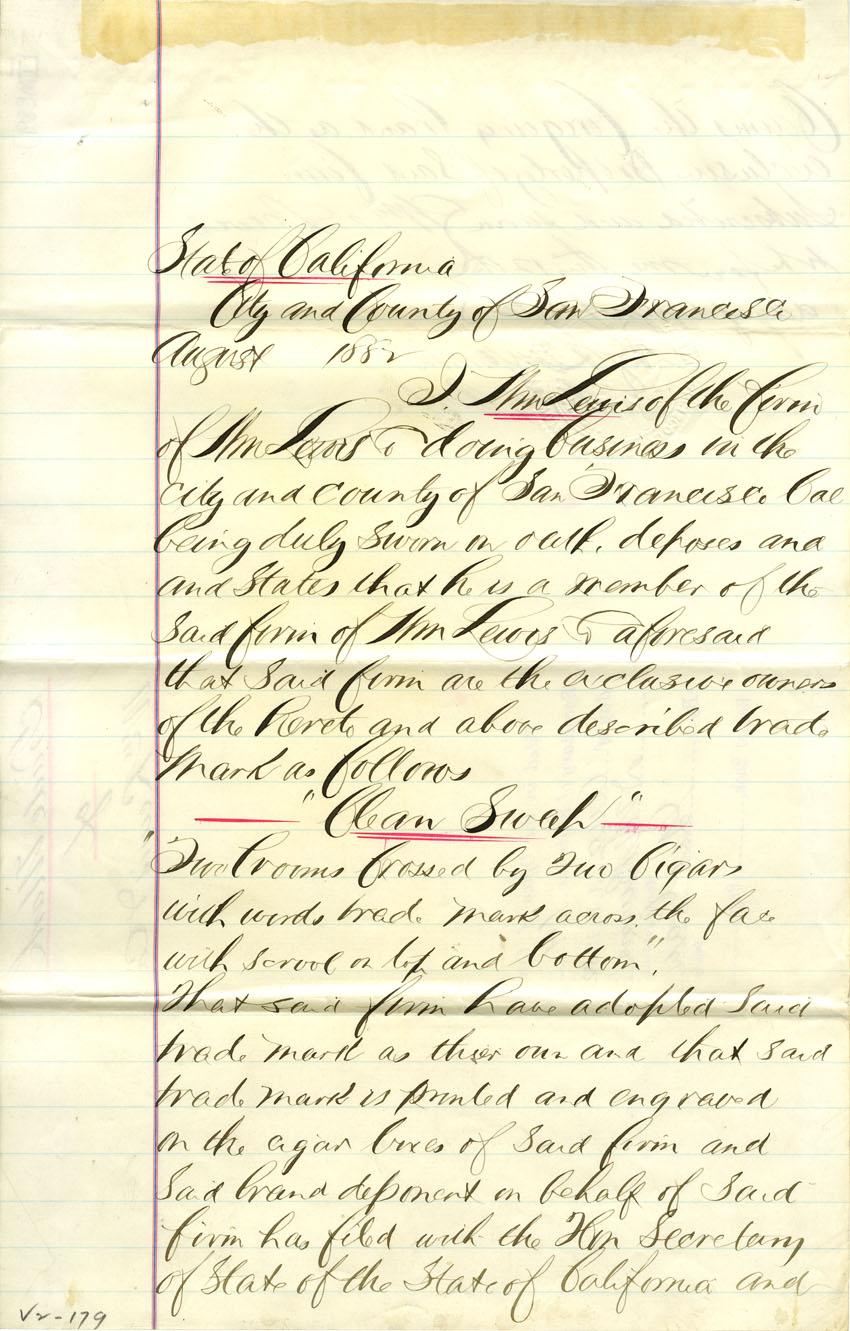 State of California
City and County of San Francisco
August 1882
I, Wm Lewis of the firm
of Wm Lewis & doing business in the
city and county of San Francisco Cal
being duly sworn on oath, deposes and
and States that he is a member of the
Said firm of Wm Lewis & aforesaid
that Said firm are the exclusive owners
of the hereto and above described trade
mark as follows
"Clean Sweep"
"Two brooms Crossed by Two Cigars
with words trade mark across the face
with scrool on top and bottom".
That said firm have adopted Said
trade mark as thier own and that Said
trade mark is printed and engraved
on the cigar boxes of Said firm and
Said brand deponent on behalf of Said
firm has filed with the Hon Secretary
of State of the State of California and
V2-179